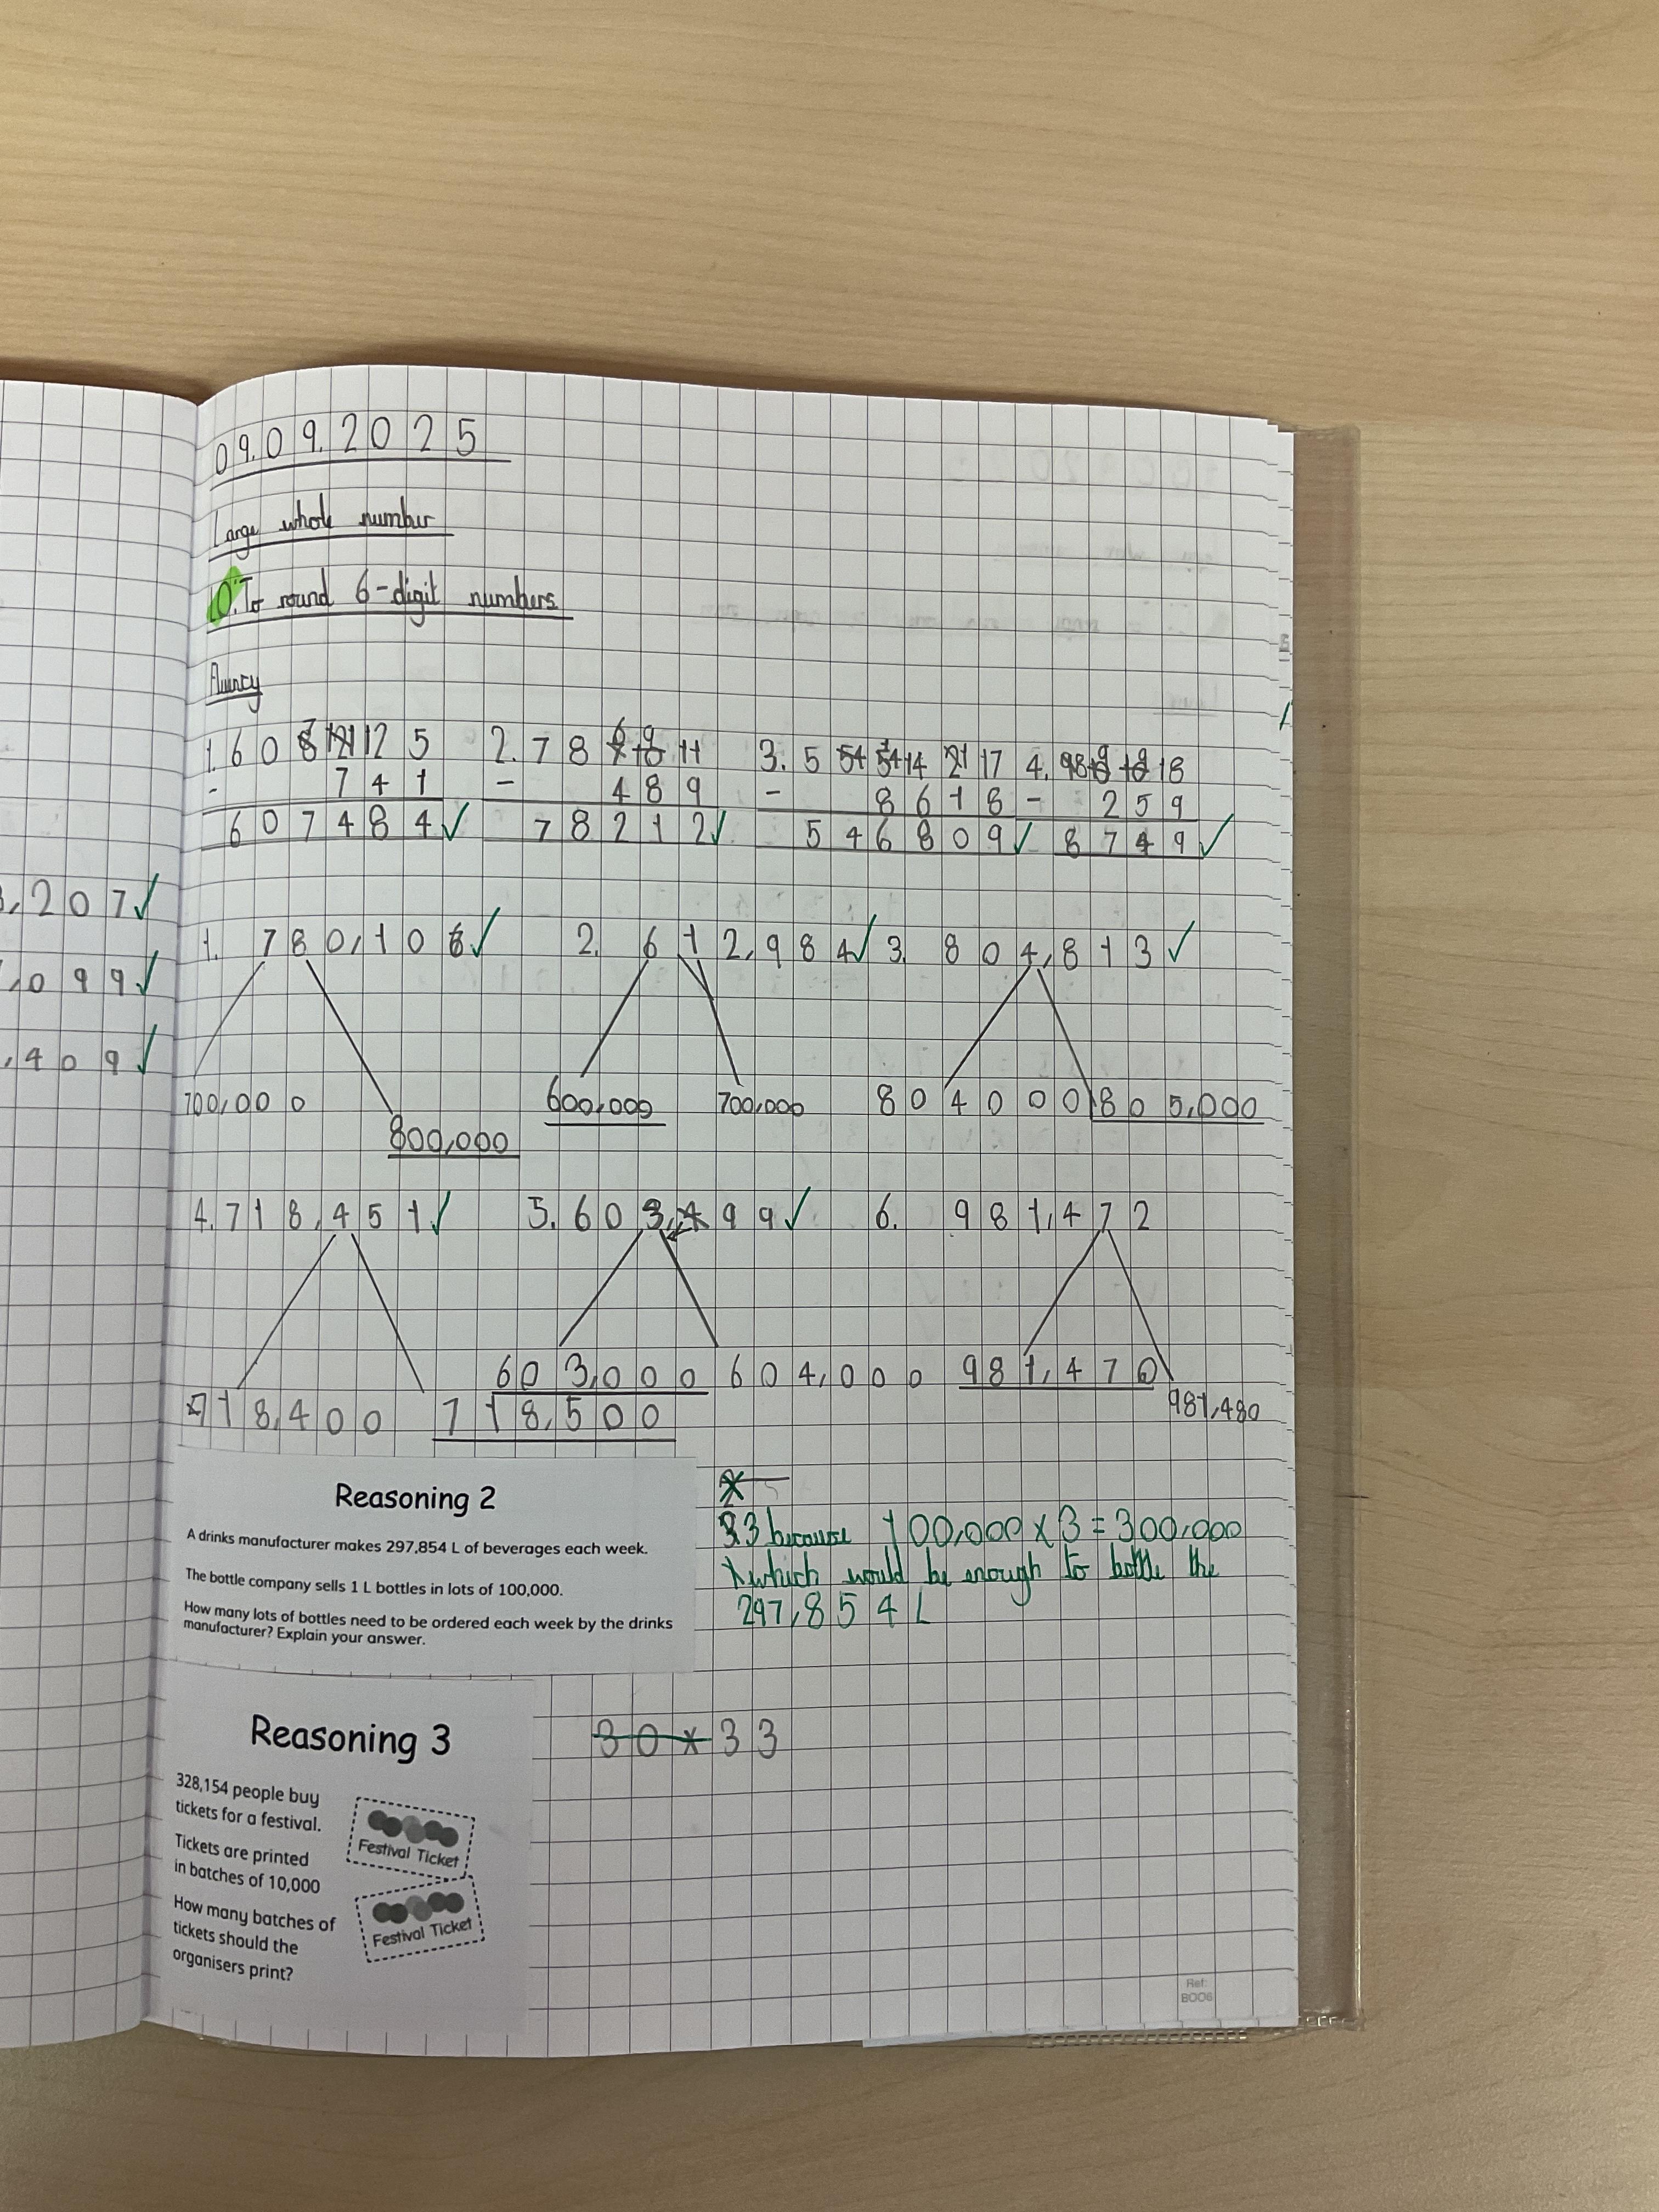 09.09.2025
Large whole number
LO: To round 6-digit numbers
Fluency
1. 608225 2. 78701 3. 555427 4. 9008
- 741 - 489 - 8618 - 259
607484 ✓ 78212 ✓ 546809 ✓ 8749 ✓
3,207 ✓
,099 ✓
,409 ✓
1. 780,106 ✓ 2. 612,984 ✓ 3. 804,813 ✓
700,000 800,000 600,000 700,000 804000 805,000
4. 718,451 ✓ 5. 603,499 ✓ 6. 981,472
718,400 718,500 603,000 604,000 981,470 981,480
Reasoning 2
A drinks manufacturer makes 297,854 L of beverages each week.
The bottle company sells 1 L bottles in lots of 100,000.
How many lots of bottles need to be ordered each week by the drinks
manufacturer? Explain your answer.
3 because 100,000 x 3 = 300,000
which would be enough to bottle the
297,854 L
Reasoning 3
328,154 people buy
tickets for a festival.
Tickets are printed
in batches of 10,000
How many batches of
tickets should the
organisers print?
Festival Ticket
Festival Ticket
30 x 33
Ref:
B006